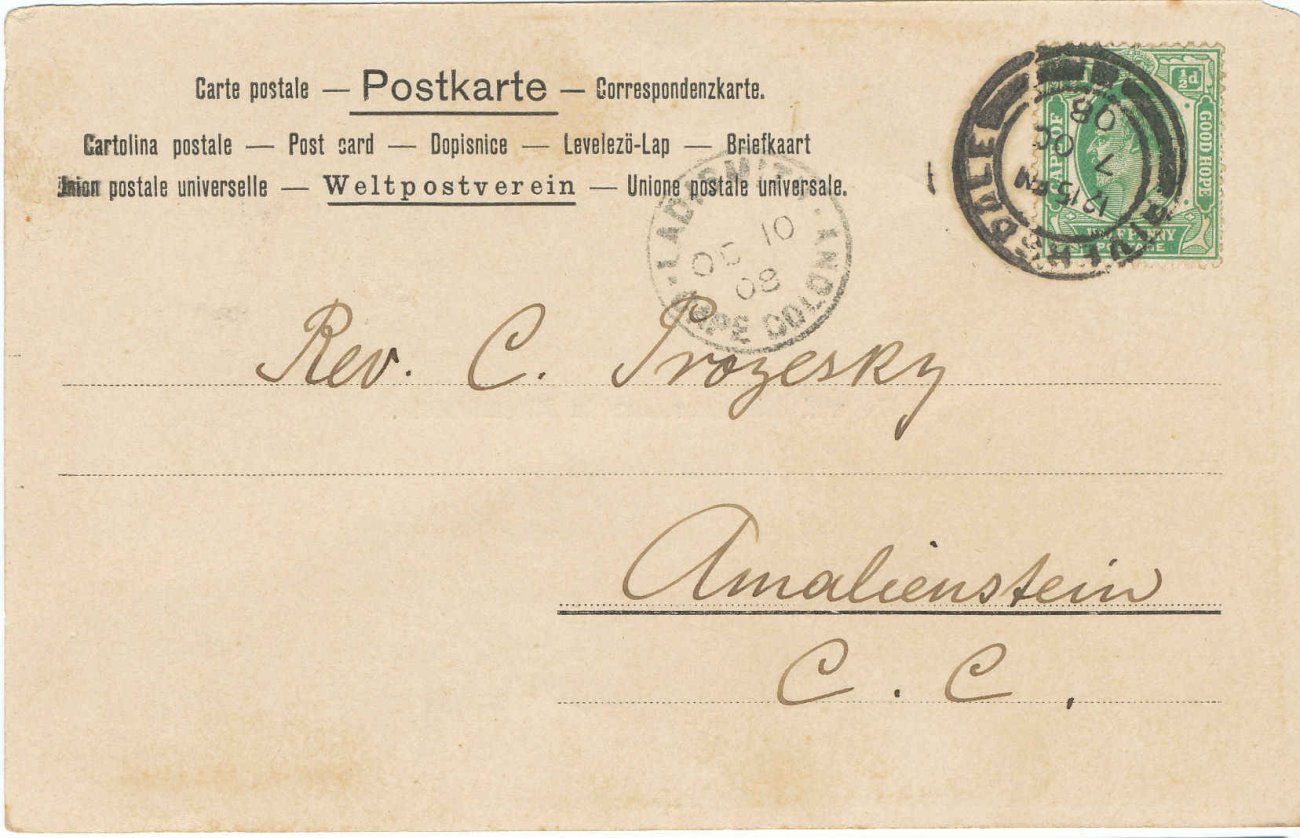 Carte postale — Postkarte — Correspondenzkarte.
Cartolina postale — Post card — Dopisnice — Levelezö-Lap — Briefkaart
Union postale universelle — Weltpostverein — Unione postale universale.
½d
CAPE OF GOOD HOPE
HALFPENNY
POSTAGE
12 15 PM
7 OC
08
LADISMITH
OC 10
08
CAPE COLONY
Rev. C. Prozesky
Amalienstein
C. C.